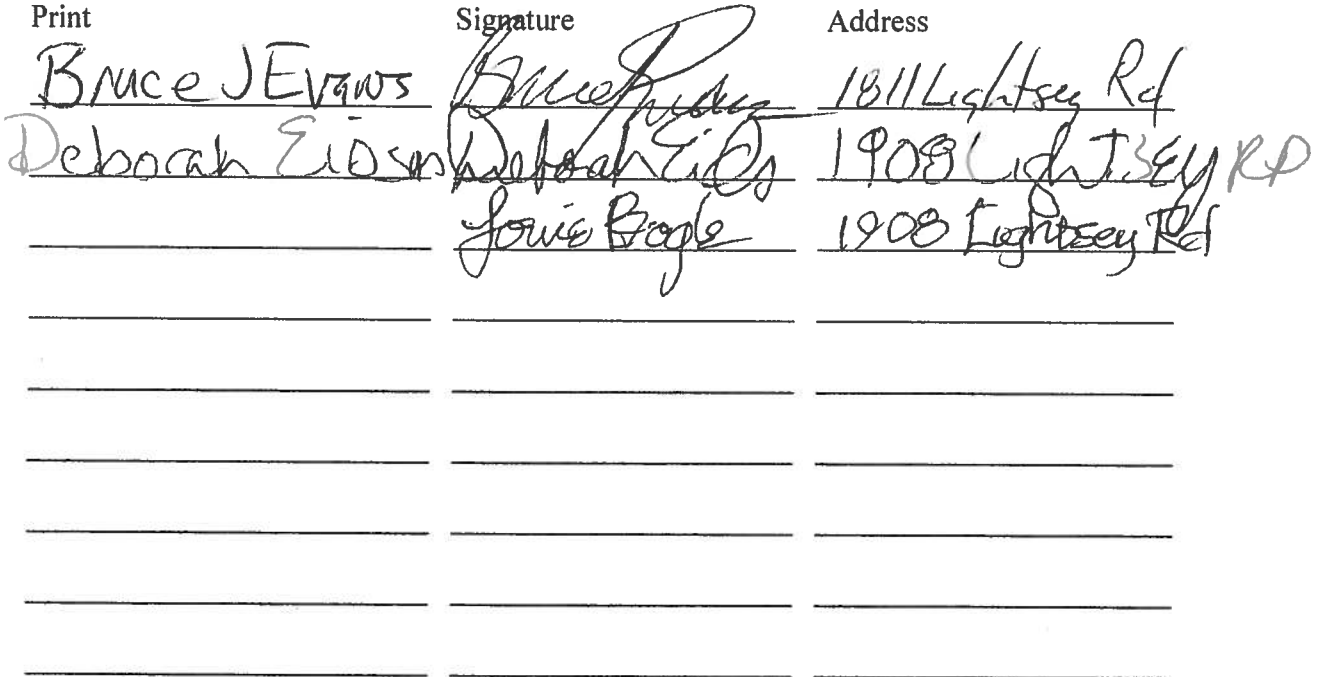 Print Signature Address
Bruce J Evans Bruce 1811 Lightsey Rd
Deborah Deborah 1908 Lightsey RD
Louis Bogle 1908 Lightsey Rd